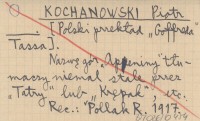 KOCHANOWSKI Piotr
—. [Polski przekład „Goffreda"
Tassa].
Nazwę gór „Appeniny" tłu-
maczy niemal stale przez
"Tatry" lub „Krępak", etc.
Rec.: Pollak R., 1917.